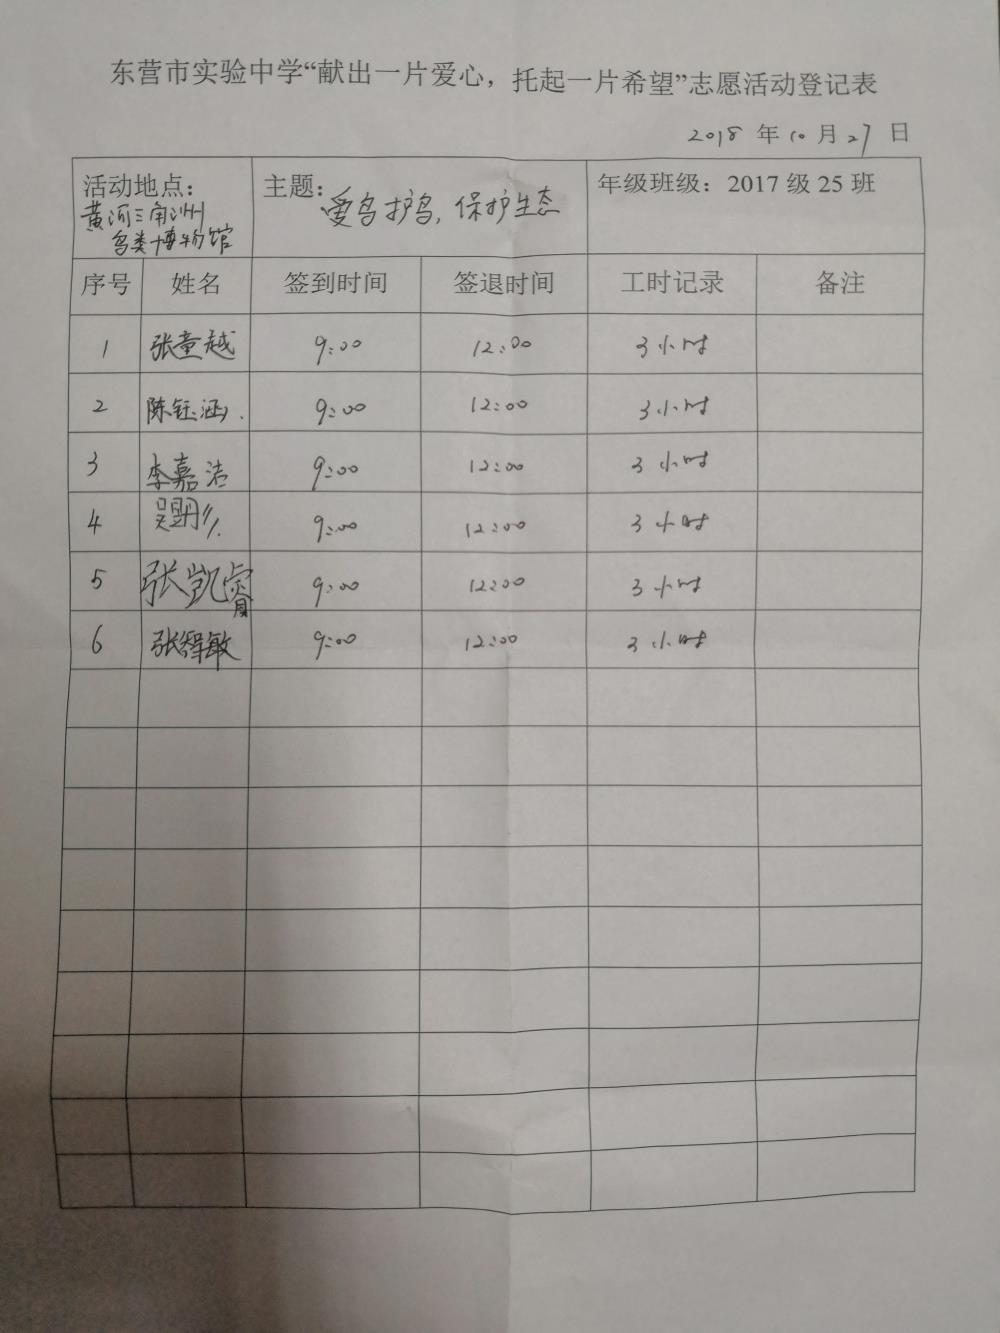 东营市实验中学“献出一片爱心，托起一片希望”志愿活动登记表
2018 年 10 月 27 日
活动地点：黄河三角洲鸟类博物馆 主题：爱鸟护鸟，保护生态 年级班级：2017 级 25 班
序号 姓名 签到时间 签退时间 工时记录 备注
1 张童越 9:00 12:00 3小时
2 陈钰涵 9:00 12:00 3小时
3 李嘉洁 9:00 12:00 3小时
4 9:00 12:00 3小时
5 张凯睿 9:00 12:00 3小时
6 张智敏 9:00 12:00 3小时